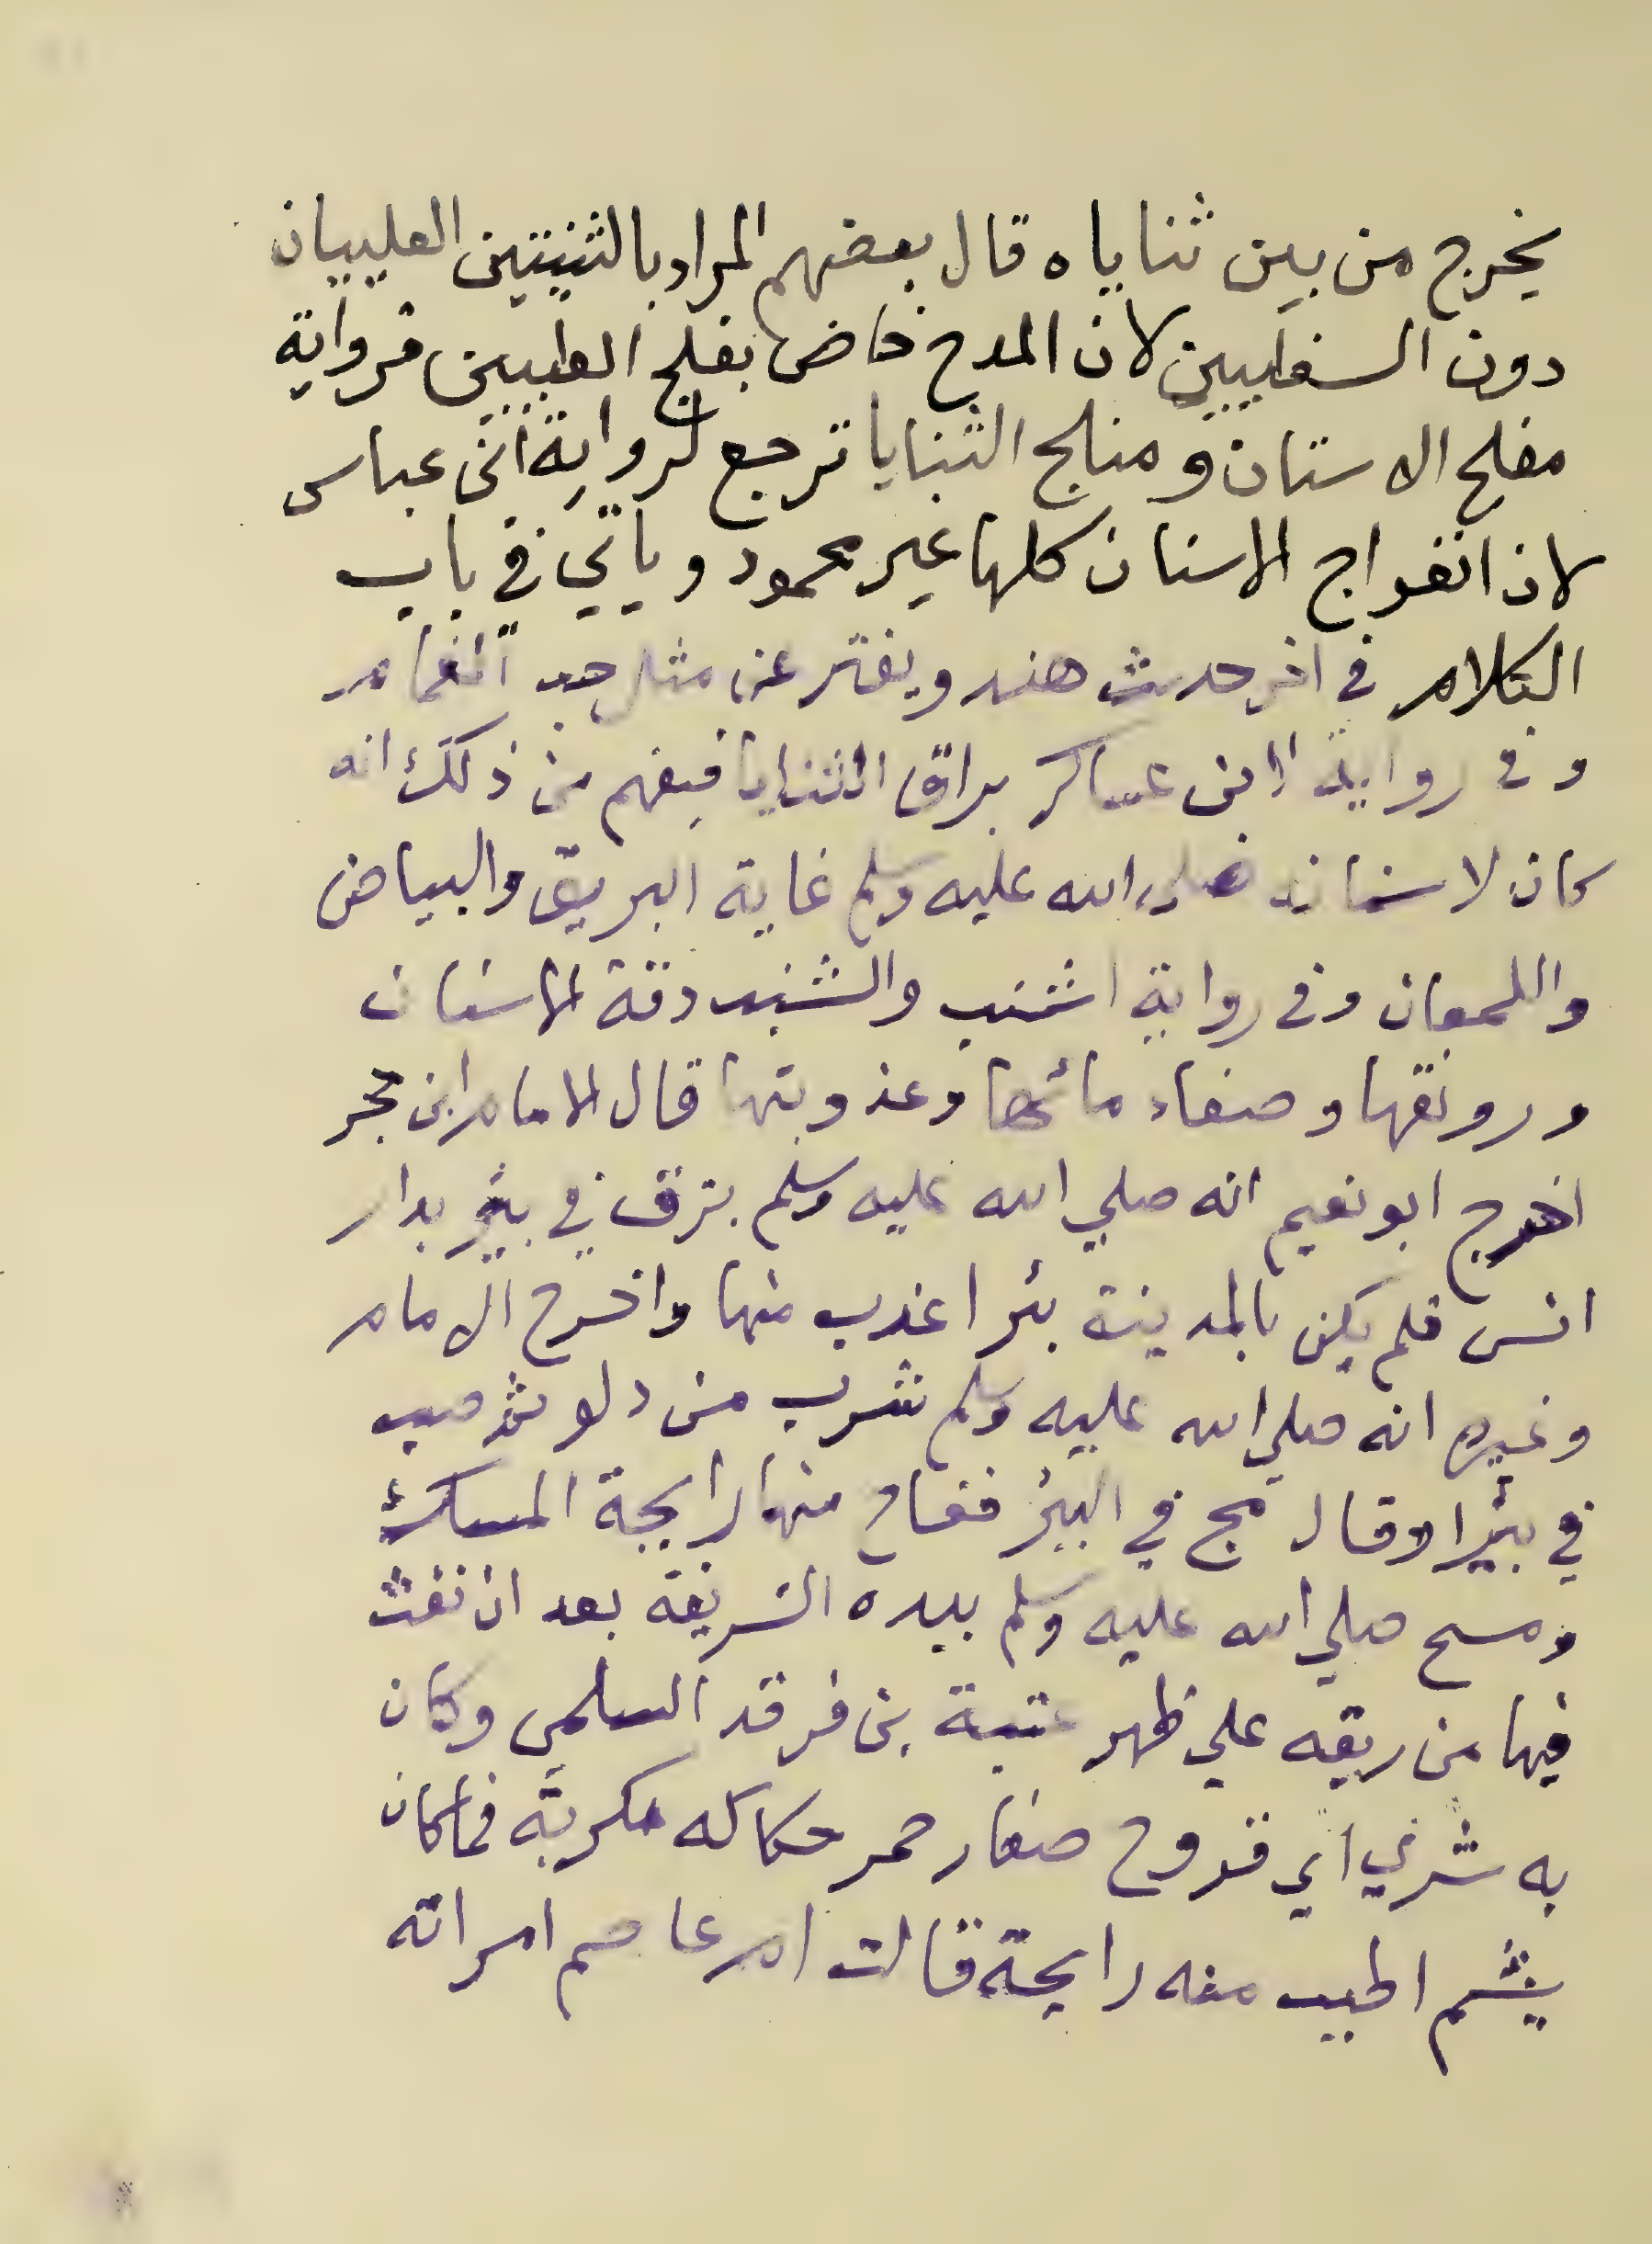 يخرج من بين ثناياه قال بعضهم المراد بالثنيتين العلييان
دون السفليين لان المدح خاص بفلج العليين فرواية
مفلج الاسنان ومفلج الثنايا ترجع لرواية ابن عباس
لان انفراج الاسنان كلها غير محمود وياتي في باب
الكلام في اخر حديث هند ويفتر عن مثل حب الغمام
وفي رواية لابن عساكر براق الثنايا فيفهم من ذلك انه
كان لاسنانه صلى الله عليه وسلم غاية البريق والبياض
واللمعان وفي رواية اشنب والشنب دقة الاسنان
ورونقها وصفاء مائها وعذوبتها قال الامام ابن حجر
اخرج ابو نعيم انه صلي الله عليه وسلم بزق في بير بدار
انس فلم يكن بالمدينة بئرا اعذب منها واخرج الامام
وغيره انه صلي الله عليه وسلم شرب من دلو ثم صب
في بئرا وقال مج في البئر ففاح منها رايحة المسك
ومسح صلي الله عليه وسلم بيده الشريفة بعد ان نفث
فيها من ريقه علي ظهر عتبة بن فرقد السلمي وكان
به شري اي قروح صغار حمر حكاكه مكربة فما كان
يشم اطيب منه رايحة قالت ام عاصم امراته